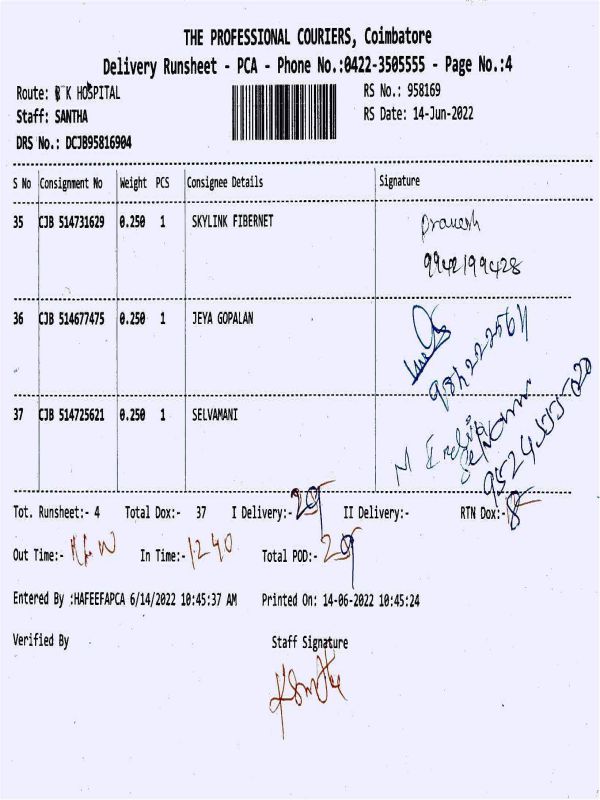 THE PROFESSIONAL COURIERS, Coimbatore
Delivery Runsheet - PCA - Phone No.:0422-3505555 - Page No.:4
Route: K HOSPITAL
RS No.: 958169
Staff: SANTHA
RS Date: 14-Jun-2022
DRS No.: DCJB95816904
S No Consignment No Weight PCS Consignee Details Signature
35 CJB 514731629 0.250 1 SKYLINK FIBERNET
9942199428
36 CJB 514677475 0.250 1 JEYA GOPALAN
37 CJB 514725621 0.250 1 SELVAMANI
Tot. Runsheet:- 4 Total Dox:- 37 I Delivery:- 29 II Delivery:- RTN Dox:- 8
Out Time:- In Time:- 1240 Total POD:- 29
Entered By :HAFEEFAPCA 6/14/2022 10:45:37 AM Printed On: 14-06-2022 10:45:24
Verified By Staff Signature